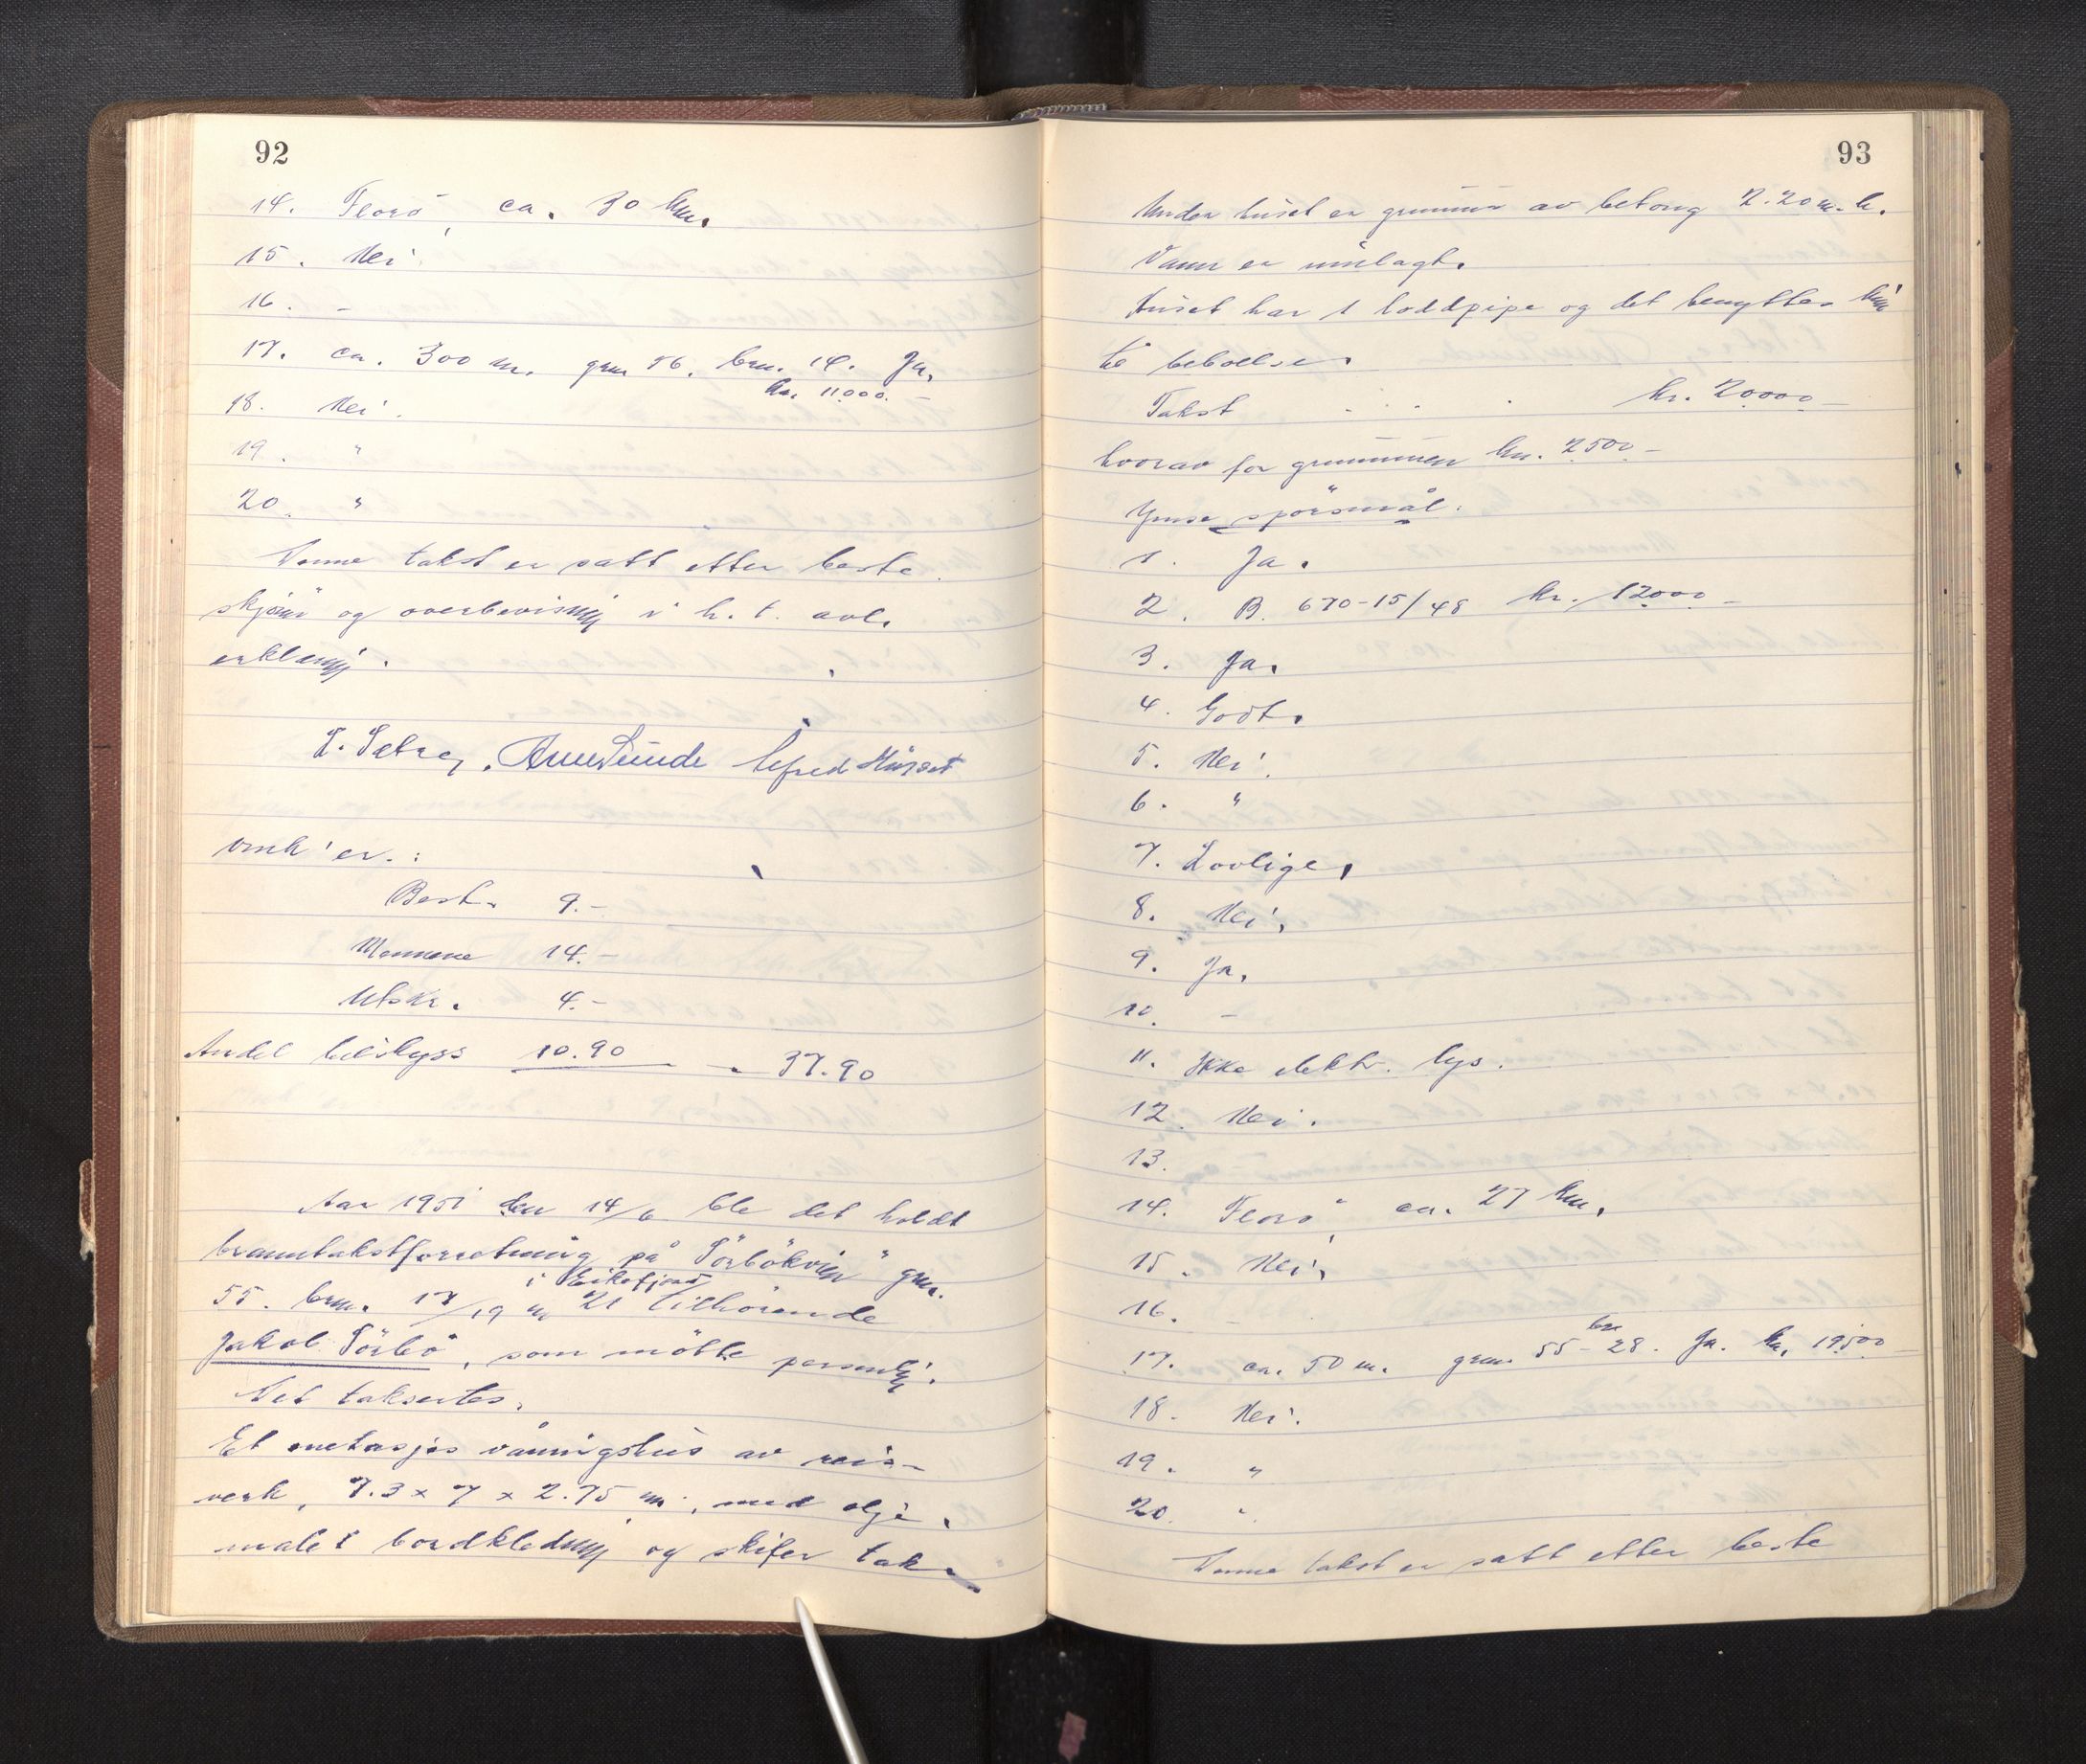 92
14. Florö, ca. 30 km.
15. Nei.
16. -
17. ca. 300 m. gnr. 56. bnr. 14. Ja.
kr. 11000.-
18. Nei.
19. "
20. "
Denne takst er satt etter beste
skjönn og overbevisning i h. t. avl.
erklæring.
Alfred Husset
omk'er. :
Best. 9.-
Mennene 14.-
Utskr. 4.-
Andel bilskyss 10.90 - 37.90
Aar 1951 den 14/6 ble det holdt
branntakstforretning på "Sörbökvien" gnr.
i Eikefjord
55. bnr. 17/19 og 21 tilhörende
Jakob Sörbö, som mötte personlig.
Det taksertes.
Et enetasjes våningshus av reis-
verk, 7.3 x 7 x 2.75 m., med olje
malet bordkledning og skifer tak.
93
Under huset er grunnmur av betong 2.20 m. h.
Vann er innlagt.
Huset har 1 loddpipe og det benyttes kun
til beboelse.
Takst . . . kr. 20000-
hvorav for grunnmuren kr. 2500.-
Ymse spörsmål.
1. Ja.
2. B. 670-15/48 kr. 12000-
3. Ja.
4. Godt.
5. Nei.
6. "
7. Lovlige.
8. Nei.
9. Ja.
10. -
11. Ikke elektr. lys.
12. Nei.
13.
14. Florö ca. 27 km.
15. Nei.
16. -
17. ca. 50 m. gnr. 55 - bnr 28. Ja. kr. 19500-
18. Nei.
19. "
20. "
Denne takst er satt etter beste